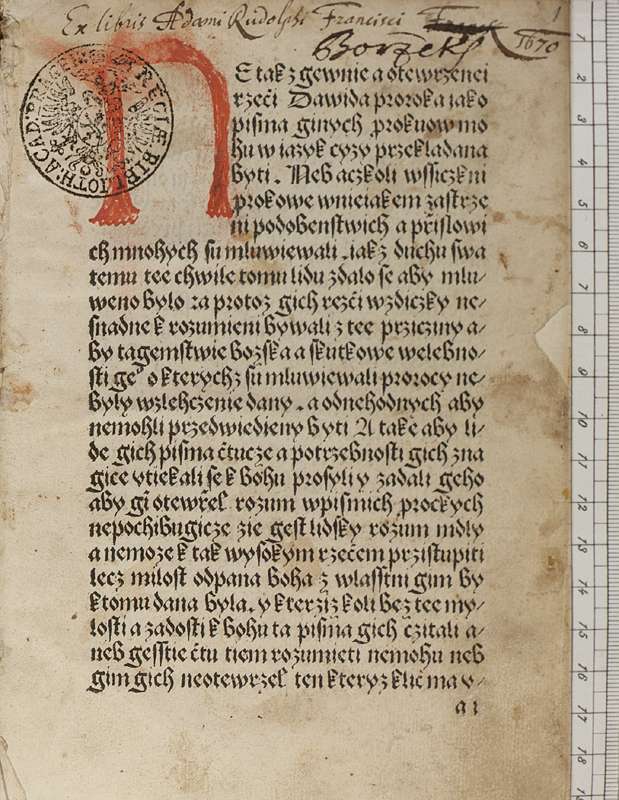 Ex libris Adami Rudolphi Francisci
Borzek 1670
1
REGIÆ BIBLIOTH: ACAD:
N
E tak z gewnie a otewrzenei
rzeči Dawida proroka iako
pisma ginych prokuow mo
hu w iazyk cyzy przekladana
byti. Neb aczkoli wssiczkni
prokowe wnieiakem zastrze
ni podobenstwich a přislowi
ch mnohych su mluwiewali. iakz duchu swa
temu tee chwile tomu lidu zdalo se aby mlu⸗
weno bylo za protoz gich rezči wzdiczky ne⸗
snadne k rozumieni bywali z tee przicziny a⸗
by tagemstwie bozska a skutkowe welebno⸗
sti ge° o kterychz su mluwiewali prorocy ne⸗
byly wzlehczenie dany. a odnehodnych aby
nemohli przedwiedieny byti A take aby li⸗
de gich pisma čtucze a potrzebnosti gich zna
gice vtiekali se k bohu prosyli y zadali geho
aby gī otewřel rozum wpismich prockych
nepochibugicze zie gest lidsky rozum mdly
a nemoze k tak wysokym rzečem przistupiti
lecz milost odpana boha z wlasstni gim by
k tomu dana byla. y kterziz koli bez tee my⸗
losti a zadosti k bohu ta pisma gich čzitali a⸗
neb gesstie čtu tiem rozumieti nemohu neb
gim gich neotewrzel ten kteryz klič ma v⸗
a i
1
2
3
4
5
6
7
8
9
10
11
12
13
14
15
16
17
18